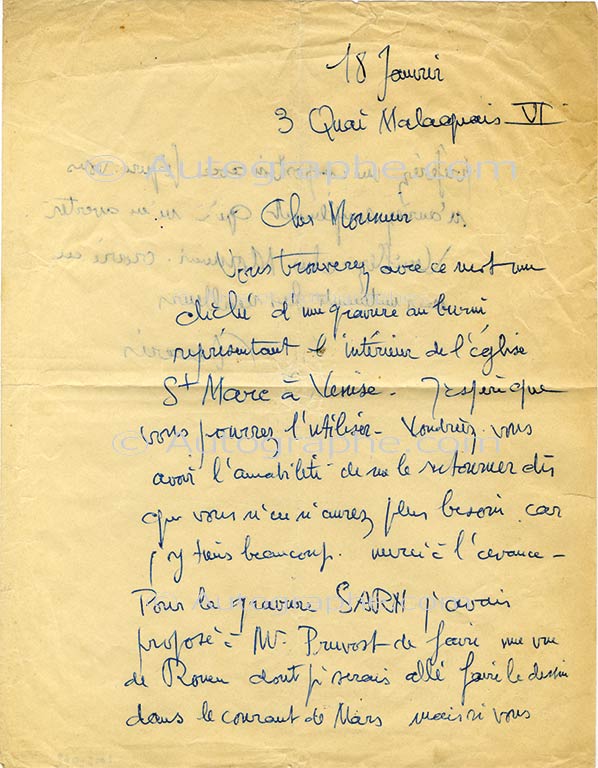 18 Janvier
3 Quai Malaquais VI
Cher Monsieur
Vous trouverez avec ce mot un
cliché d'une gravure au burin
représentant l'intérieur de l'église
St Marc à Venise - J'espère que
vous pourrez l'utiliser - Voudriez vous
avoir l'amabilité de me le retourner dès
que vous n'en n'aurez plus besoin car
j'y tiens beaucoup. merci à l'avance -
Pour la gravure SARN j'avais
proposé à Mr. Pruvost de faire une vue
de Rouen dont je serais allé faire le dessin
dans le courant de Mars mais si vous
© Autographe.com
© Autographe.com
© Autographe.com